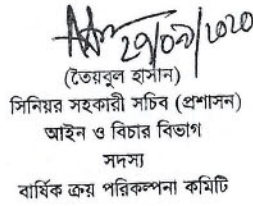 ২৭/০৯/২০২০
(তৈয়বুল হাসান)
সিনিয়র সহকারী সচিব (প্রশাসন)
আইন ও বিচার বিভাগ
সদস্য
বার্ষিক ক্রয় পরিকল্পনা কমিটি